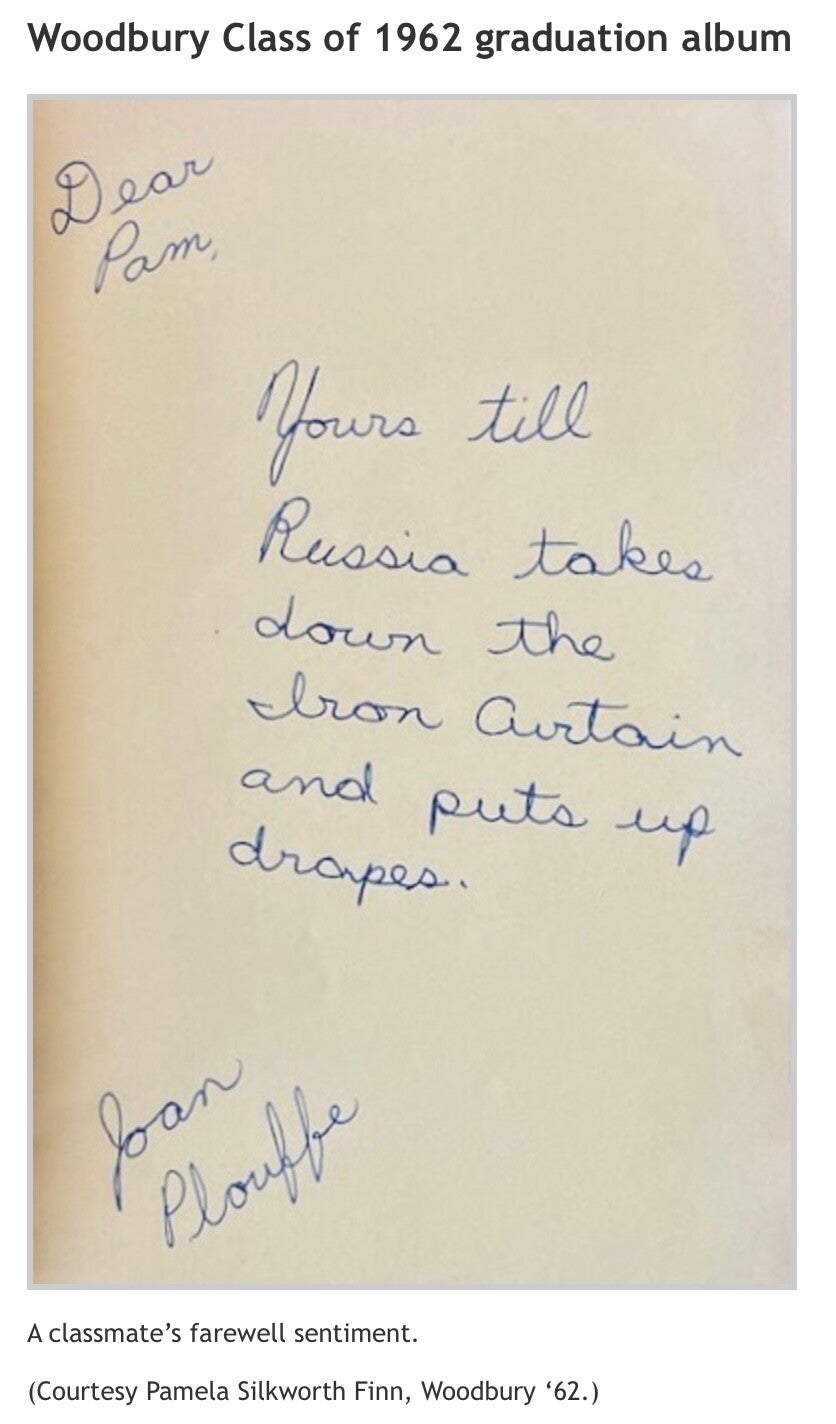 Woodbury Class of 1962 graduation album
Dear
Pam,
Yours till
Russia takes
down the
Iron Curtain
and puts up
drapes.
Joan
Plouffe
A classmate’s farewell sentiment.
(Courtesy Pamela Silkworth Finn, Woodbury ‘62.)